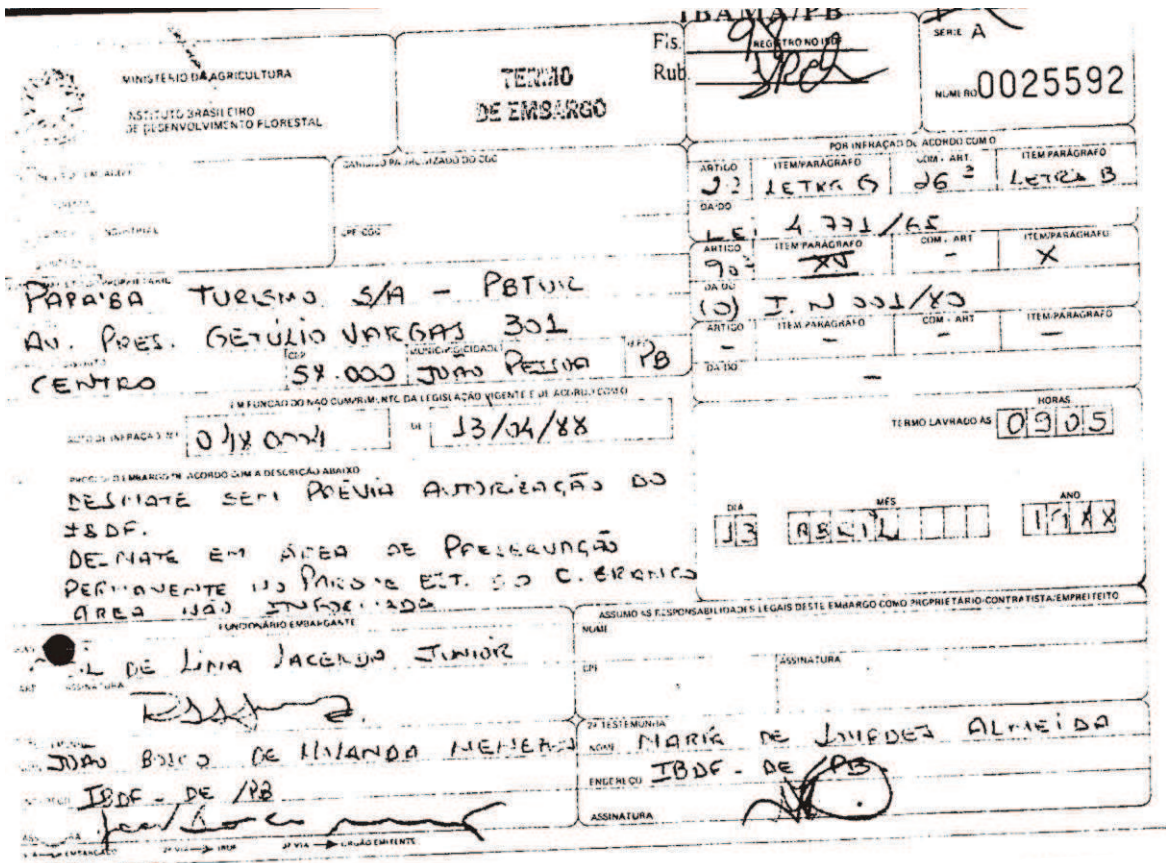 IBAMA/PB
Fls. 98
REGISTRO NO IBDF
Rub.
SÉRIE A
NÚMERO 0025592
MINISTÉRIO DA AGRICULTURA
INSTITUTO BRASILEIRO
DE DESENVOLVIMENTO FLORESTAL
TERMO
DE EMBARGO
POR INFRAÇÃO DE ACORDO COM O
ARTIGO ITEM/PARÁGRAFO COM. ART. ITEM/PARÁGRAFO
LETRA G 26 LETRA B
DA DO
LEI 4 771/65
ARTIGO ITEM/PARÁGRAFO COM. ART ITEM/PARÁGRAFO
90º XV - X
DA DO
(O) I.N 001/80
ARTIGO ITEM PARÁGRAFO COM. ART ITEM/PARÁGRAFO
- - - -
DA DO
-
INDUSTRIAL
CPF-CGC
PARAIBA TURISMO S/A - PBTUR
AV. PRES. GETÚLIO VARGAS 301
CEP MUNICÍPIO (CIDADE)
CENTRO 58.000 JOÃO PESSOA PB
EM FUNÇÃO DO NÃO CUMPRIMENTO DA LEGISLAÇÃO VIGENTE E DE ACORDO COM O
AUTO DE INFRAÇÃO Nº DE 13/04/88
HORAS
TERMO LAVRADO ÀS 0905
EMBARGO DE ACORDO COM A DESCRIÇÃO ABAIXO
DESMATE SEM PRÉVIA AUTORIZAÇÃO DO
IBDF.
DESMATE EM ÁREA DE PRESERVAÇÃO
PERMANENTE NO PARQUE EST. DO C. BRANCO
ÁREA NÃO INFORMADA
DIA MÊS ANO
13 ABRIL 1988
FUNCIONÁRIO EMBARGANTE
DE LIMA LACERDA JUNIOR
ASSINATURA
ASSUMO AS RESPONSABILIDADES LEGAIS DESTE EMBARGO COMO PROPRIETÁRIO-CONTRATISTA/EMPREITEITO
NOME
CPF
ASSINATURA
JOÃO BOSCO DE MIRANDA MENEZES
IBDF - DE /PB
2ª TESTEMUNHA
NOME MARIA DE LOURDES ALMEIDA
ENDEREÇO IBDF - DE /PB
ASSINATURA
EMBARGADO 2ª VIA IBDF 3ª VIA ÓRGÃO EMITENTE